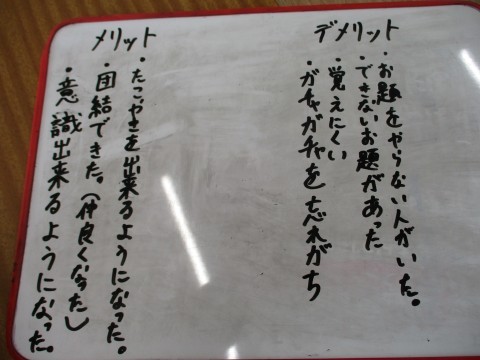 デメリット
・お題をやらない人がいた。
・できないお題があった
・覚えにくい
・ガチャガチャを忘れがち
メリット
・たこやきを出来るようになった。
・団結できた。(仲良くなった)
・意識出来るようになった。